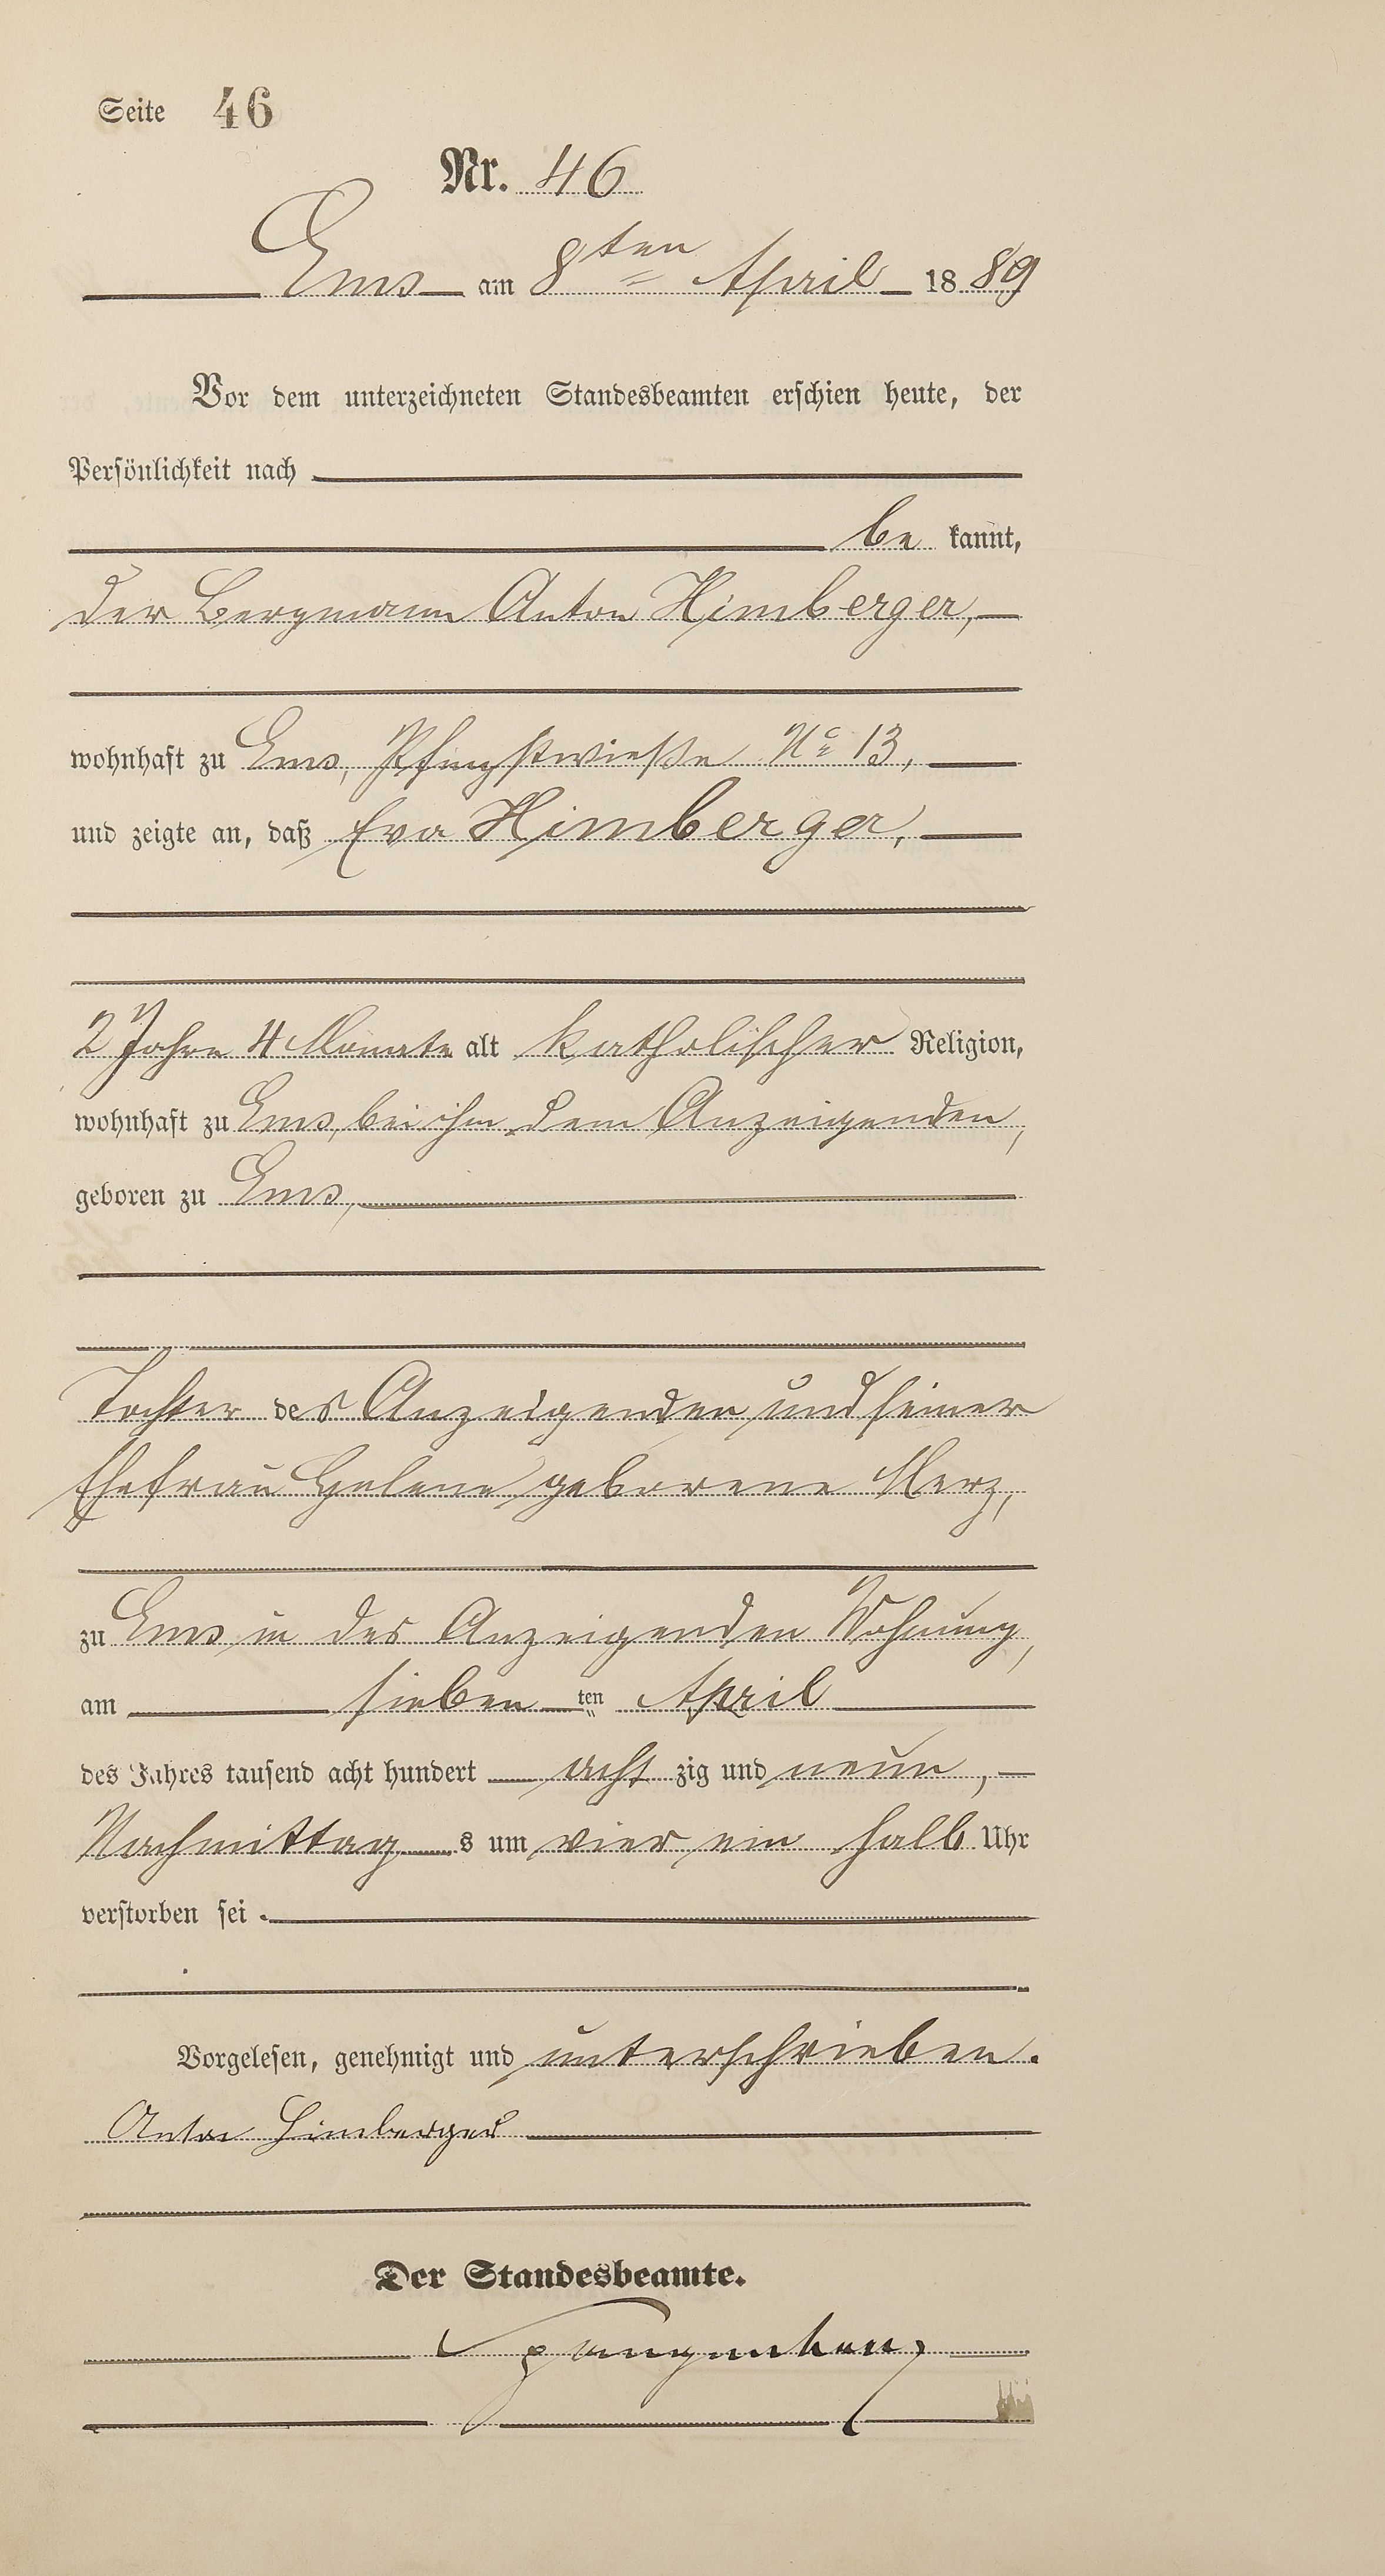 Seite 46
Nr. 46
Ems am 8ten April 1889
Vor dem unterzeichneten Standesbeamten erschien heute, der
Persönlichkeit nach
be kannt,
der Bergmann Anton Himberger,
wohnhaft zu Ems, Pfingstwieße No 13,
und zeigte an, daß Eva Himberger,
2 Jahre 4 Monate alt katholischer Religion,
wohnhaft zu Ems, bei ihm dem Anzeigenden,
geboren zu Ems,
Tochter des Anzeigenden und seiner
Ehefrau Helene geborene Merz,
zu Ems in des Anzeigenden Wohnung,
am sieben ten April
des Jahres tausend acht hundert acht zig und neun,
Nachmittag s um vier ein halb Uhr
verstorben sei.
Vorgelesen, genehmigt und unterschrieben.
Anton Himberger
Der Standesbeamte.